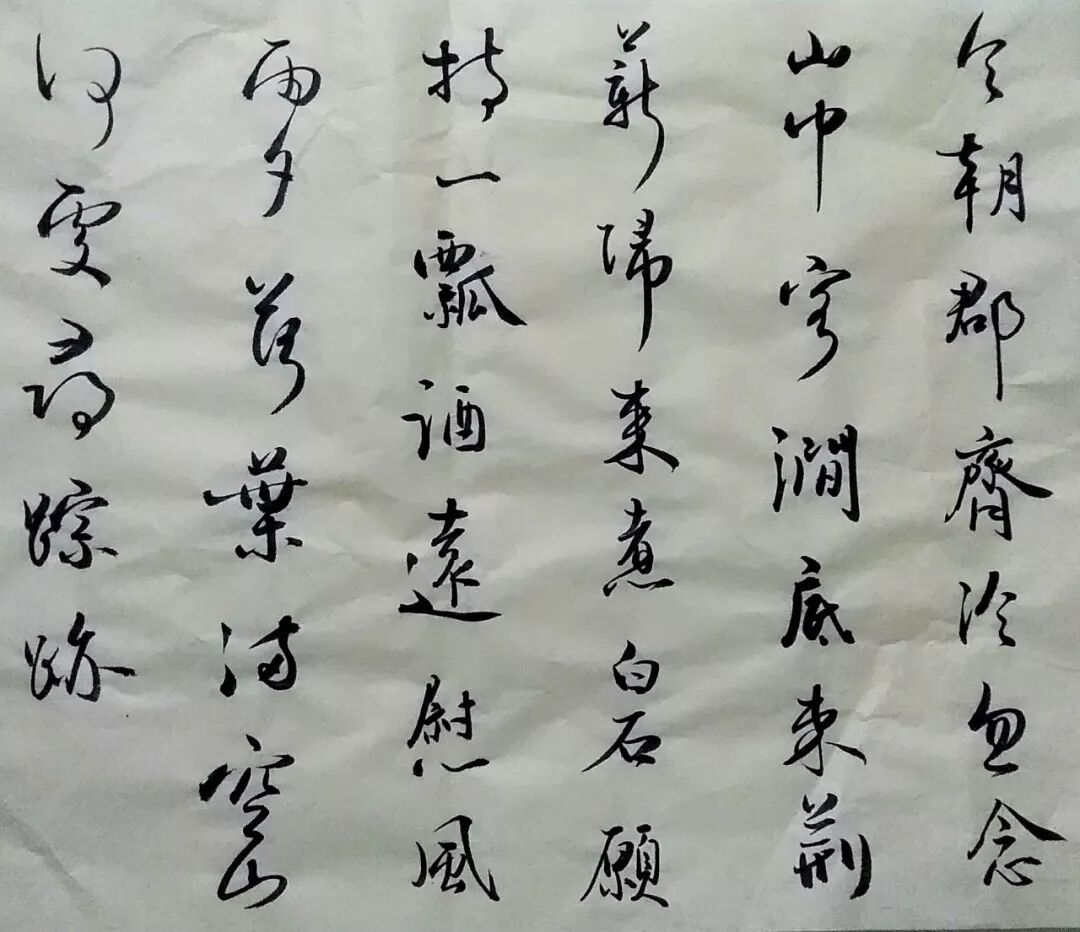 今朝郡齊冷忽念
山中客澗底束荆
薪歸來煮白石願
持一瓢酒遠慰風
雨夕落葉滿空山
何處尋踪跡